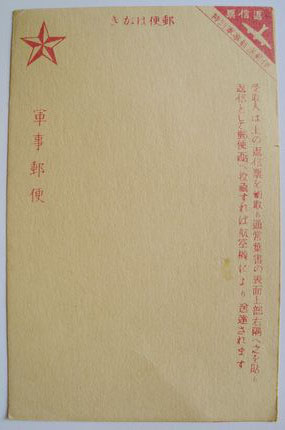 郵便はがき
返信票
受取人は上の返信票を切取り通常葉書の表面上部右隅へ之を貼り
返信として郵便函へ投函すれば航空機により逓送されます
軍事郵便